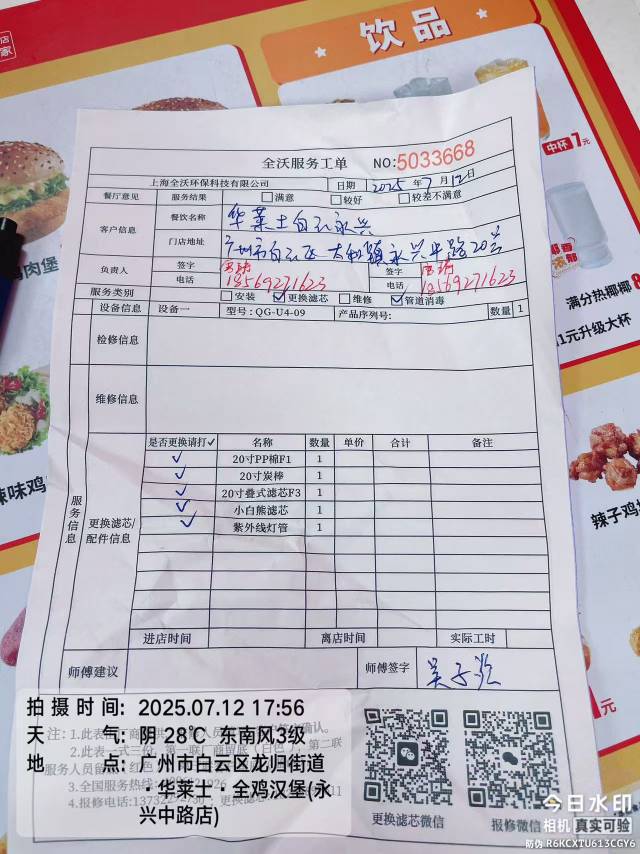 店
家
饮品
中杯7元
满分热椰椰8
1元升级大杯
鸡肉堡
辣味鸡
辣子鸡
全沃服务工单 NO:5033668
上海全沃环保科技有限公司 日期 2025年7月12日
餐厅意见 服务结果 满意 较好 较差不满意
客户信息 餐饮名称 华莱士白云永兴
门店地址 广州市白云区太和镇永兴中路20号
负责人 签字 签字
电话 13569271623 电话 13569271623
服务类别 安装 ✓更换滤芯 维修 ✓管道消毒
设备信息 设备一 型号:QG-U4-09 产品序列号: 数量 1
检修信息
维修信息
服务信息
更换滤芯/配件信息
是否更换请打✓ 名称 数量 单价 合计 备注
✓ 20寸PP棉F1 1
✓ 20寸炭棒 1
✓ 20寸叠式滤芯F3 1
✓ 小白熊滤芯 1
✓ 紫外线灯管 1
进店时间 离店时间 实际工时
师傅建议 师傅签字
拍摄时间: 2025.07.12 17:56
天气: 阴 28℃ 东南风3级
地点: 广州市白云区龙归街道
·华莱士·全鸡汉堡(永
兴中路店)
更换滤芯微信 报修微信
今日水印
相机 真实可验
防伪 R6KCXTU613CGY6